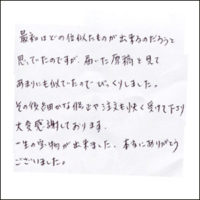 最初はどの位似たものが出来るのだろうと
思っていたのですが、届いた原稿を見て
あまりにも似ていたのでびっくりしました。
その後も細かな修正や注文も快く受けて下さり
大変感謝しております。
一生の宝物が出来ました、本当にありがとう
ございました。